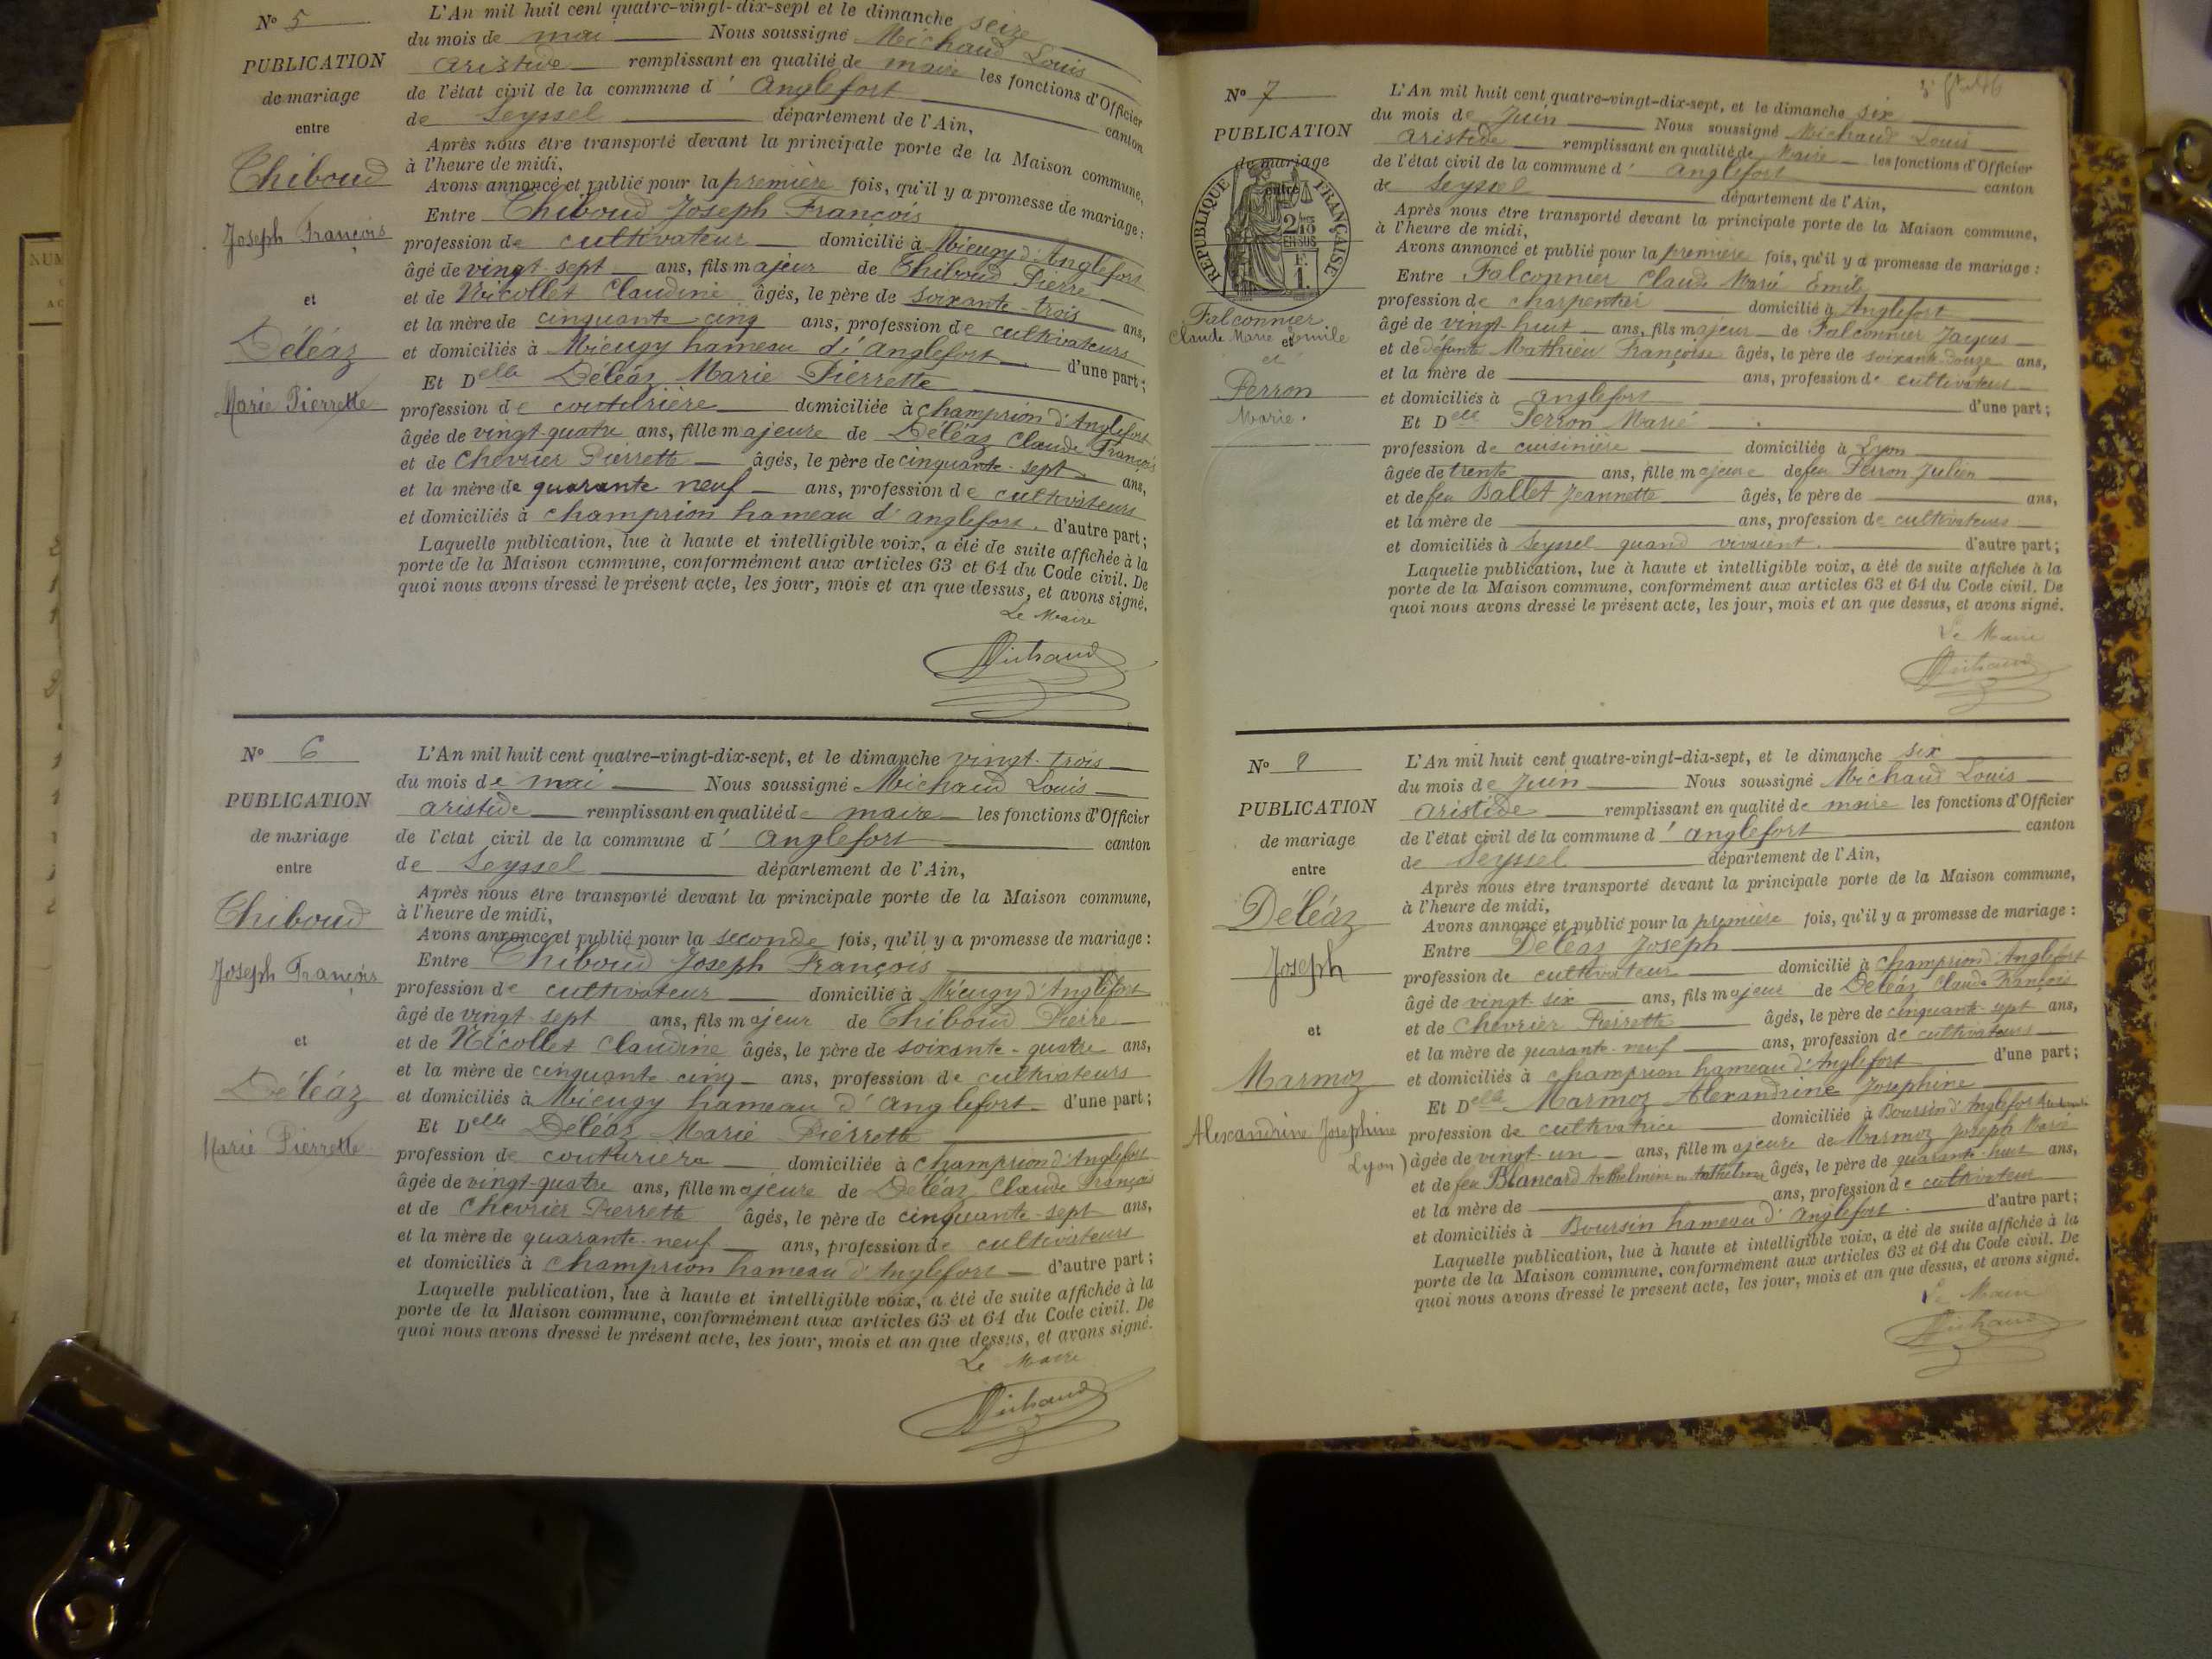 N° 5
PUBLICATION
de mariage
entre
Thiboud
Joseph François
et
Déléaz
Marie Pierrette
L'An mil huit cent quatre-vingt-dix-sept et le dimanche seize
du mois de mai Nous soussigné Michaud Louis
aristide remplissant en qualité de maire les fonctions d'Officier
de l'état civil de la commune d' Anglefort canton
de Seyssel département de l'Ain,
Après nous être transporté devant la principale porte de la Maison commune,
à l'heure de midi,
Avons annoncé et publié pour la première fois, qu'il y a promesse de mariage :
Entre Thiboud Joseph François
profession de cultivateur domicilié à Mieugy d'Anglefort
âgé de vingt-sept ans, fils majeur de Thiboud Pierre
et de Nicollet Claudine âgés, le père de soixante-trois ans,
et la mère de cinquante cinq ans, profession de cultivateurs
et domiciliés à Mieugy hameau d'Anglefort d'une part ;
Et Delle Déléaz Marie Pierrette
profession de couturière domiciliée à champrion d'Anglefort
âgée de vingt-quatre ans, fille majeure de Déléaz Claude François
et de Chevrier Pierrette âgés, le père de cinquante-sept ans,
et la mère de quarante neuf ans, profession de cultivateurs
et domiciliés à champrion hameau d'anglefort. d'autre part ;
Laquelle publication, lue à haute et intelligible voix, a été de suite affichée à la
porte de la Maison commune, conformément aux articles 63 et 64 du Code civil. De
quoi nous avons dressé le présent acte, les jour, mois et an que dessus, et avons signé.
Le Maire
Michaud
N° 6
PUBLICATION
de mariage
entre
Thiboud
Joseph François
et
Déléaz
Marie Pierrette
L'An mil huit cent quatre-vingt-dix-sept, et le dimanche vingt-trois
du mois de mai Nous soussigné Michaud Louis
aristide remplissant en qualité de maire les fonctions d'Officier
de l'état civil de la commune d' Anglefort canton
de Seyssel département de l'Ain,
Après nous être transporté devant la principale porte de la Maison commune,
à l'heure de midi,
Avons annoncé et publié pour la seconde fois, qu'il y a promesse de mariage :
Entre Thiboud Joseph François
profession de cultivateur domicilié à Mieugy d'Anglefort
âgé de vingt-sept ans, fils majeur de Thiboud Pierre
et de Nicollet Claudine âgés, le père de soixante-quatre ans,
et la mère de cinquante cinq ans, profession de cultivateurs
et domiciliés à Mieugy hameau d'anglefort d'une part ;
Et Delle Déléaz Marie Pierrette
profession de couturiere domiciliée à champrion d'Anglefort
âgée de vingt-quatre ans, fille majeure de Déléaz Claude François
et de Chevrier Pierrette âgés, le père de cinquante-sept ans,
et la mère de quarante-neuf ans, profession de cultivateurs
et domiciliés à champrion hameau d'Anglefort d'autre part ;
Laquelle publication, lue à haute et intelligible voix, a été de suite affichée à la
porte de la Maison commune, conformément aux articles 63 et 64 du Code civil. De
quoi nous avons dressé le présent acte, les jour, mois et an que dessus, et avons signé.
Le Maire
Michaud
N° 7
PUBLICATION
de mariage
entre
RÉPUBLIQUE FRANÇAISE
2/10 EN SUS
F.
1.
Falconnier
Claude Marie Emile
et
et
Perron
Marie.
L'An mil huit cent quatre-vingt-dix-sept, et le dimanche six
du mois de Juin Nous soussigné Michaud Louis
aristide remplissant en qualité de Maire les fonctions d'Officier
de l'état civil de la commune d' anglefort canton
de Seyssel département de l'Ain,
Après nous être transporté devant la principale porte de la Maison commune,
à l'heure de midi,
Avons annoncé et publié pour la première fois, qu'il y a promesse de mariage :
Entre Falconnier Claude Marie Emile
profession de charpentier domicilié à Anglefort
âgé de vingt-huit ans, fils majeur de Falconnier Jacques
et de défunte Mathieu Françoise âgés, le père de soixante-douze ans,
et la mère de ans, profession de cultivateur
et domiciliés à anglefort d'une part ;
Et Delle Perron Marie
profession de cuisinière domiciliée à Lyon
âgée de trente ans, fille majeure de feu Perron Julien
et de feu Ballet Jeannette âgés, le père de ans,
et la mère de ans, profession de cultivateurs
et domiciliés à Seyssel quand vivaient. d'autre part ;
Laquelle publication, lue à haute et intelligible voix, a été de suite affichée à la
porte de la Maison commune, conformément aux articles 63 et 64 du Code civil. De
quoi nous avons dressé le présent acte, les jour, mois et an que dessus, et avons signé.
Le Maire
Michaud
N° 8
PUBLICATION
de mariage
entre
Déléaz
Joseph
et
Marmoz
Alexandrine Josephine
Lyon)
L'An mil huit cent quatre-vingt-dix-sept, et le dimanche six
du mois de Juin Nous soussigné Michaud Louis
aristide remplissant en qualité de maire les fonctions d'Officier
de l'état civil de la commune d' anglefort canton
de Seyssel département de l'Ain,
Après nous être transporté devant la principale porte de la Maison commune,
à l'heure de midi,
Avons annoncé et publié pour la première fois, qu'il y a promesse de mariage :
Entre Déléaz Joseph
profession de cultivateur domicilié à champrion d'Anglefort
âgé de vingt-six ans, fils majeur de Déléaz Claude François
et de Chevrier Pierrette âgés, le père de cinquante-sept ans,
et la mère de quarante-neuf ans, profession de cultivateurs
et domiciliés à champrion hameau d'Anglefort d'une part ;
Et Delle Marmoz Alexandrine Josephine
profession de cultivatrice domiciliée à Boursin d'Anglefort
âgée de vingt-un ans, fille majeure de Marmoz Joseph Marie
et de feu Blancard âgés, le père de quarante-huit ans,
et la mère de ans, profession de cultivateur
et domiciliés à Boursin hameau d'Anglefort. d'autre part ;
Laquelle publication, lue à haute et intelligible voix, a été de suite affichée à la
porte de la Maison commune, conformément aux articles 63 et 64 du Code civil. De
quoi nous avons dressé le présent acte, les jour, mois et an que dessus, et avons signé.
Le Maire
Michaud